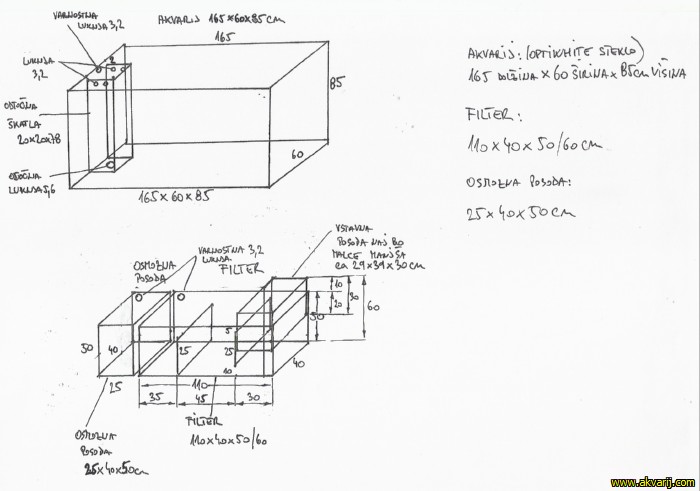 VARNOSTNA
LUKNJA 3,2
AKVARIJ 165×60×85 CM
165
2
LUKNJE
3,2
ODTOČNA
ŠKATLA
20×20×78
ODTOČNA
LUKNJA 5,6
85
60
165×60×85
AKVARIJ: (OPTIWHITE STEKLO)
165 DOLŽINA × 60 ŠIRINA × 85cm VIŠINA
FILTER:
110×40×50/60cm
OSMOZNA POSODA:
25×40×50cm
VSTAVNA
POSODA NAJ BO
MALCE MANJŠA
ca 29×39×30cm
VARNOSTNA 3,2
LUKNJA
FILTER
OSMOZNA
POSODA
10
20
30
50
60
50
40
25
25
5
25
10
40
110
35
45
30
FILTER
110×40×50/60
OSMOZNA
POSODA
25×40×50cm
www.akvarij.com